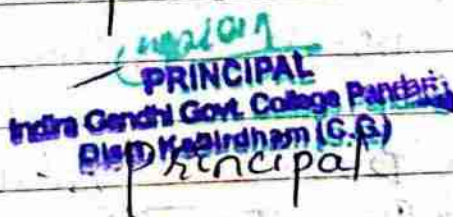 PRINCIPAL
Indira Gandhi Govt. College Pandaria
Distt. Kabirdham (C.G.)
Principal